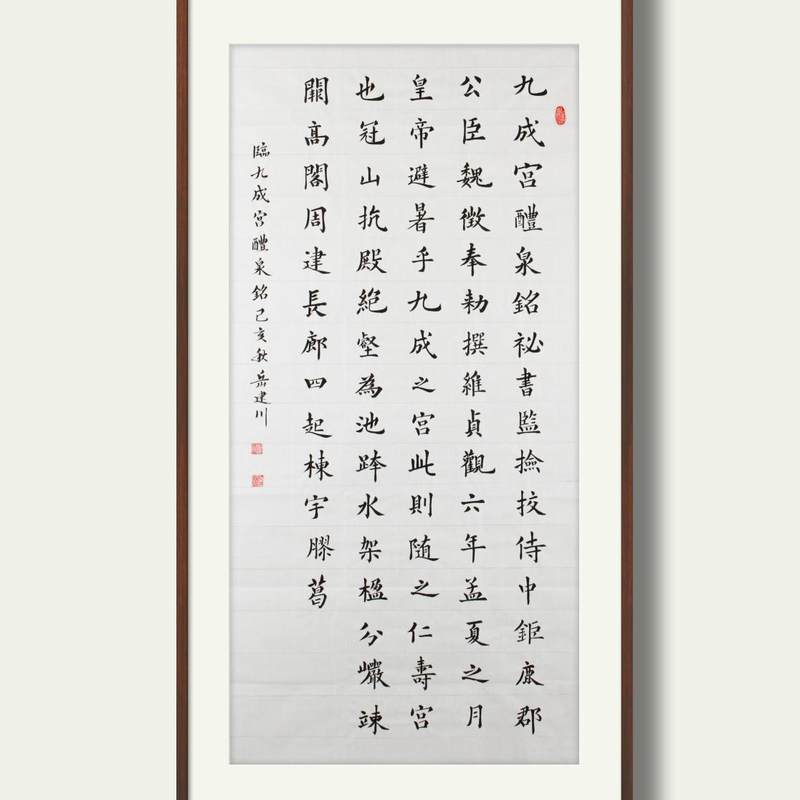 九成宫醴泉銘祕書監撿挍侍中鉅鹿郡
公臣魏徵奉勅撰維貞觀六年孟夏之月
皇帝避暑乎九成之宫此則随之仁壽宫
也冠山抗殿絶壑為池跨水架楹分巗竦
闕高閣周建長廊四起棟宇膠葛
臨九成宫醴泉銘己亥秋岳建川